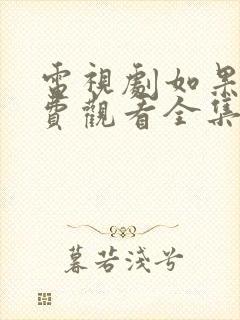 電視劇如果
費觀看全集
暮若淺兮